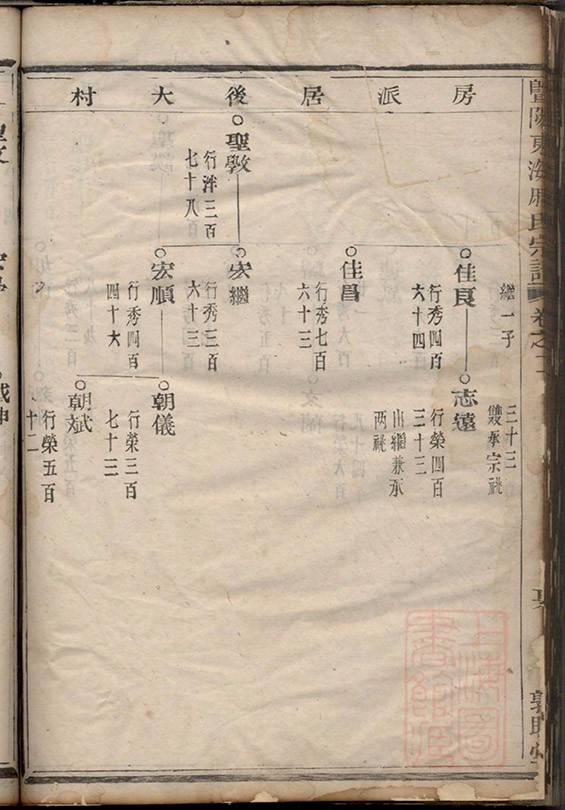 暨陽東海
氏宗譜
卷之
房派居後大村
繼一子
三十三
雙承宗祧
佳良
行秀四百
六十四
志遠
行榮四百
三十三
出繼兼承
两祧
佳昌
行秀七百
六十三
聖敎
行泮三百
七十八
宏繼
行秀三百
六十三
宏順
行秀四百
四十六
朝儀
行榮三百
七十三
朝斌
行榮五百
十二